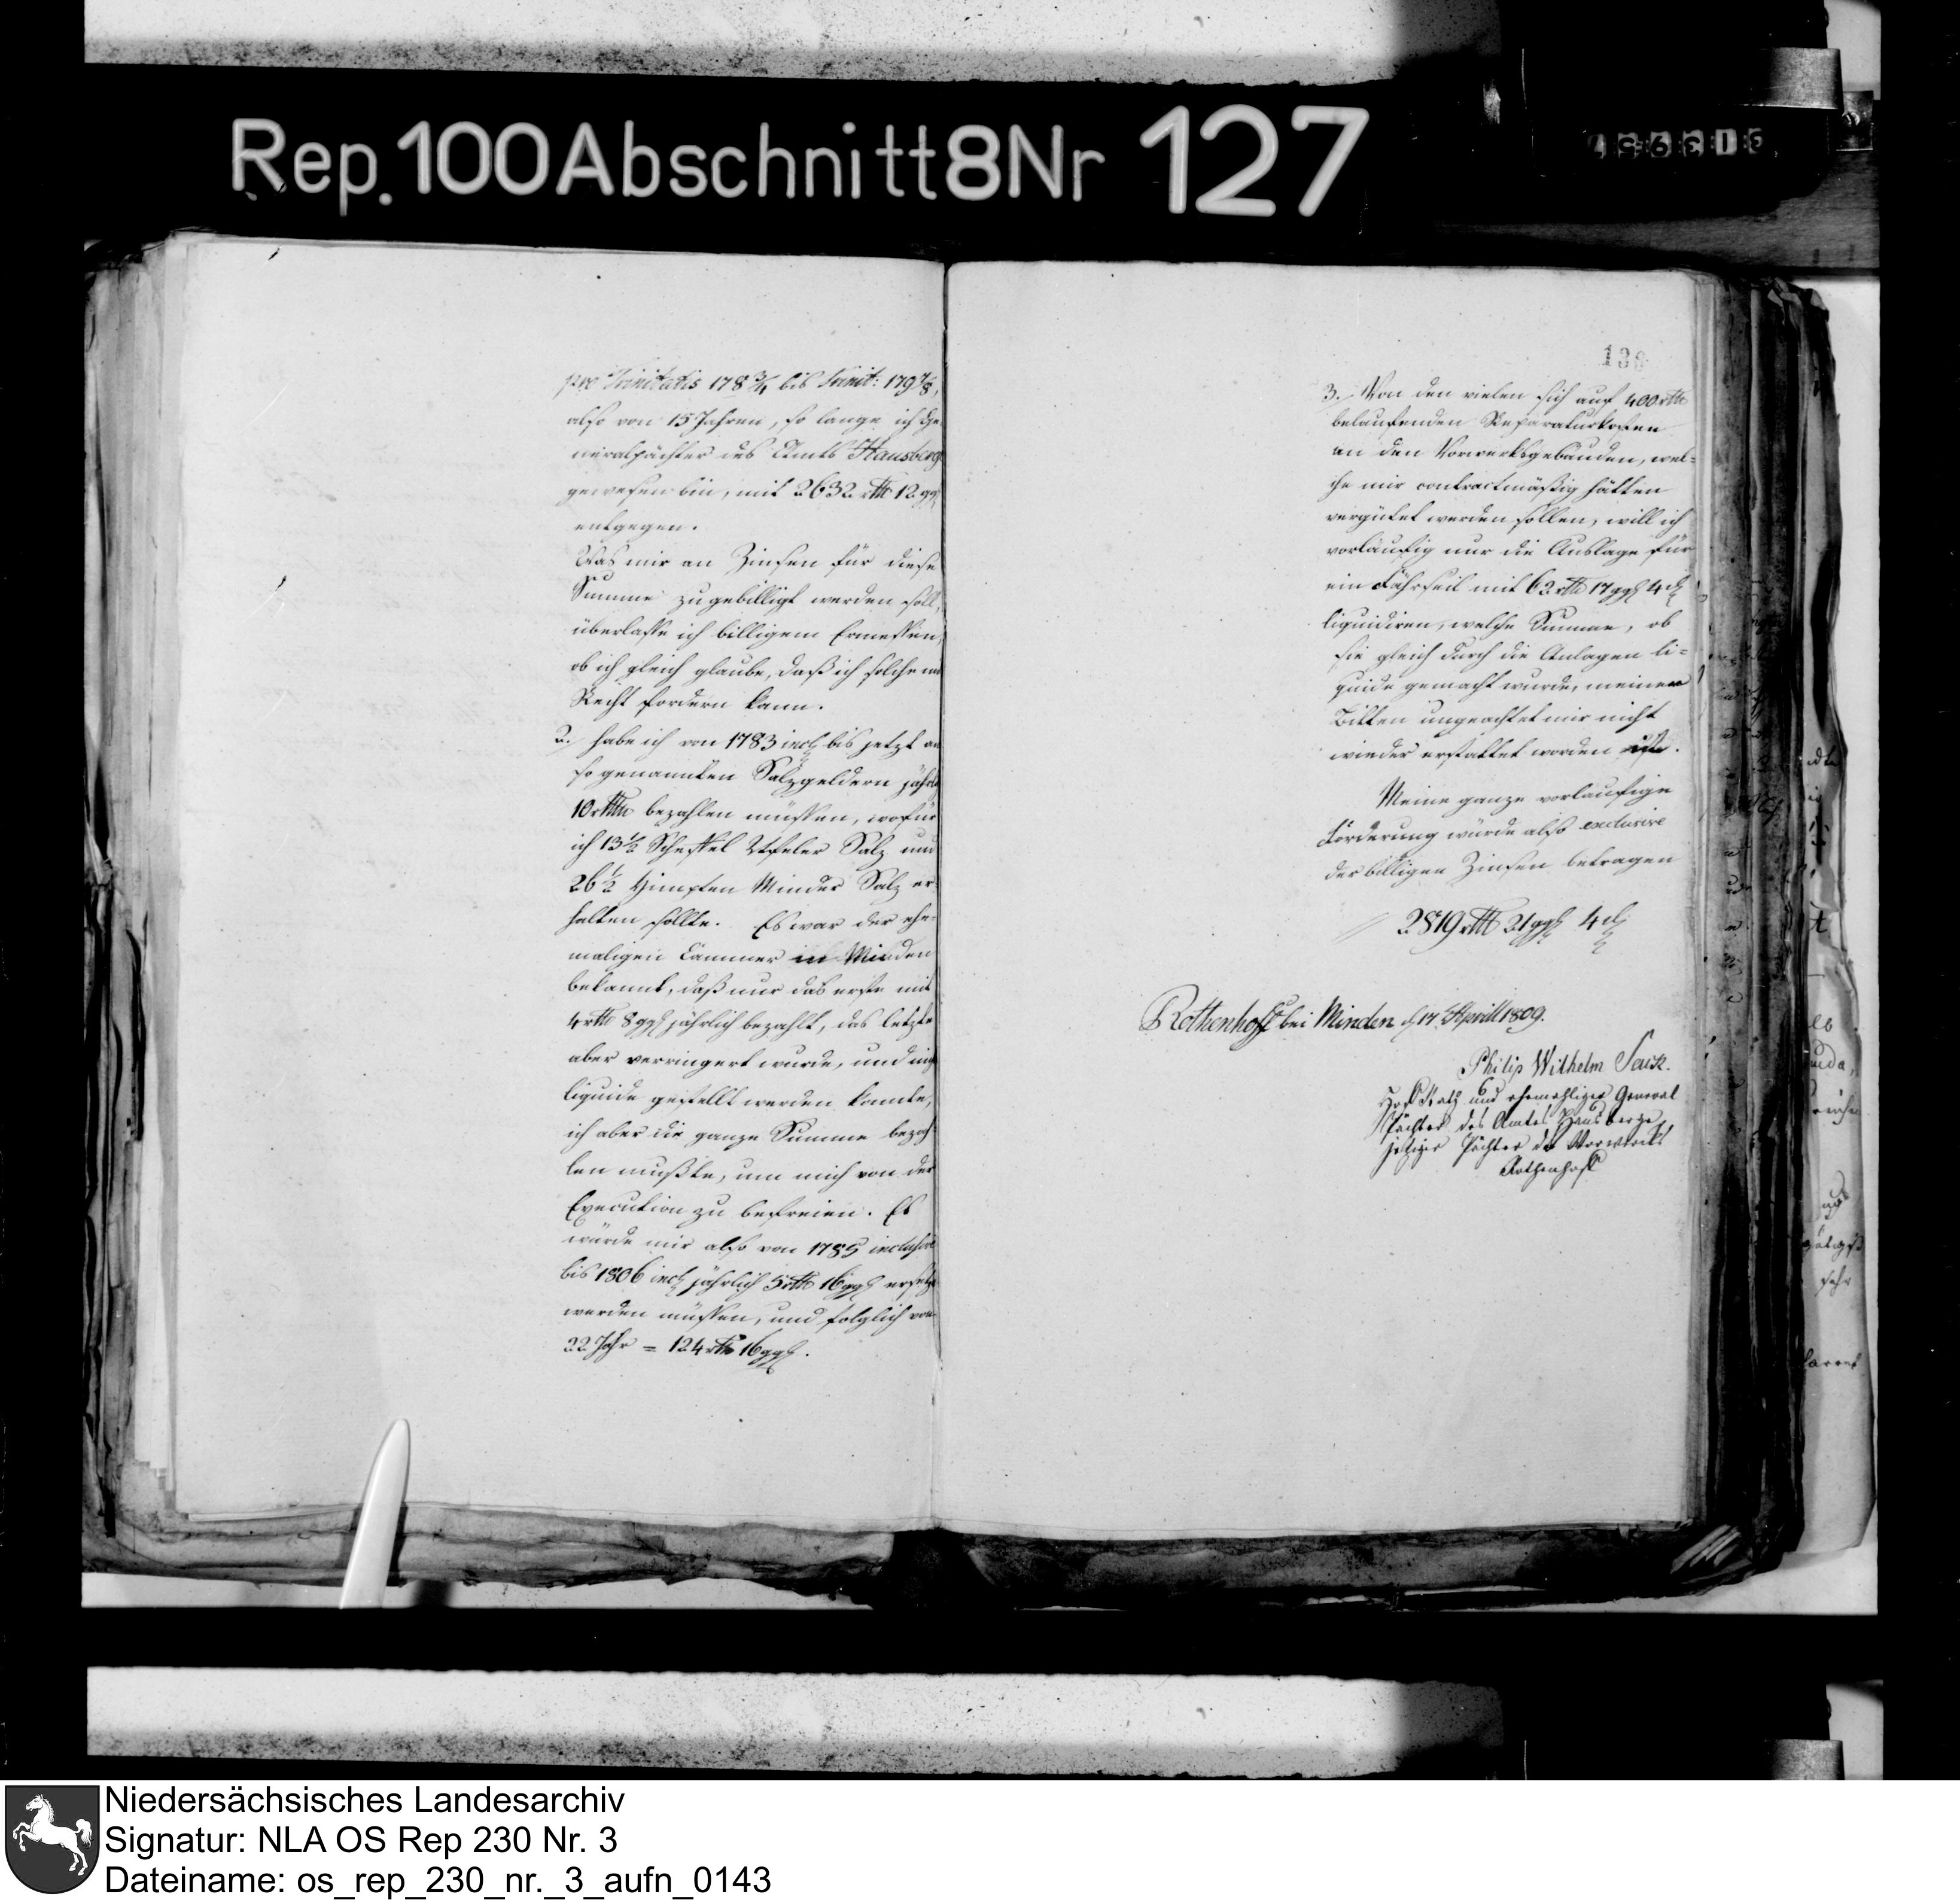 Rep. 100 Abschnitt 8 Nr 127
pro Trinitatis 178¾ bis Trinit: 179⅞,
also von 15 Jahren, so lange ich Ge-
neralpächter des Amts Hausberge
gewesen bin, mit 2632 rthl 12 ggl
entgegen.
Was mir an Zinsen für diese
Summe zugebilligt werden soll,
überlasse ich billigem Ermessen,
ob ich gleich glaube, daß ich solche mit
Recht fordern kann.
2. habe ich von 1783 incl bis jetzt an
so genannten Salzgeldern jährl
10 rthlr bezahlen müssen, wofür
ich 13½ Scheffel Salz und
26½ Himpten Minder Salz er-
halten sollte. Es war der ehe-
maligen Cammer in Minden
bekannt, daß nur das erste mit
4 rthl 8 ggl jährlich bezahlt, das letzte
aber verringert wurde, und nicht
liquide gestellt werden konnte,
ich aber die ganze Summe bezah-
len mußte, um mich von der
Execution zu befreien. Es
würde mir also von 1785 inclusive
bis 1806 incl jährlich 5 rthl 16 ggl ersetzt
werden müssen, und folglich von
22 Jahr = 124 rthl 16 ggl.
3. Von den vielen sich auf 400 rthl
belaufenden Reparaturkosten
an den Vorwerksgebäuden, wel-
che mir contractmäßig hätten
vergütet werden sollen, will ich
vorläufig nur die Auslage für
ein Fährseil mit 62 rthl 17 ggl 4 d
liquidiren, welche Summe, ob
sie gleich durch die Anlagen li-
quide gemacht wurde, meiner
Bitten ungeachtet mir nicht
wieder erstattet worden ist.
Meine ganze vorläufige
Forderung würde also exclusive
der billigen Zinsen betragen
2819 rthl 21 ggl 4 d
Rothenhoff bei Minden d 17 Aprill 1809.
Philip Wilhelm
Hof Rath und ehemahliger General
Pächter des Amtes Hausberge,
jetziger Pächter des Vorwerks
Rothenhoff
Niedersächsisches Landesarchiv
Signatur: NLA OS Rep 230 Nr. 3
Dateiname: os_rep_230_nr._3_aufn_0143